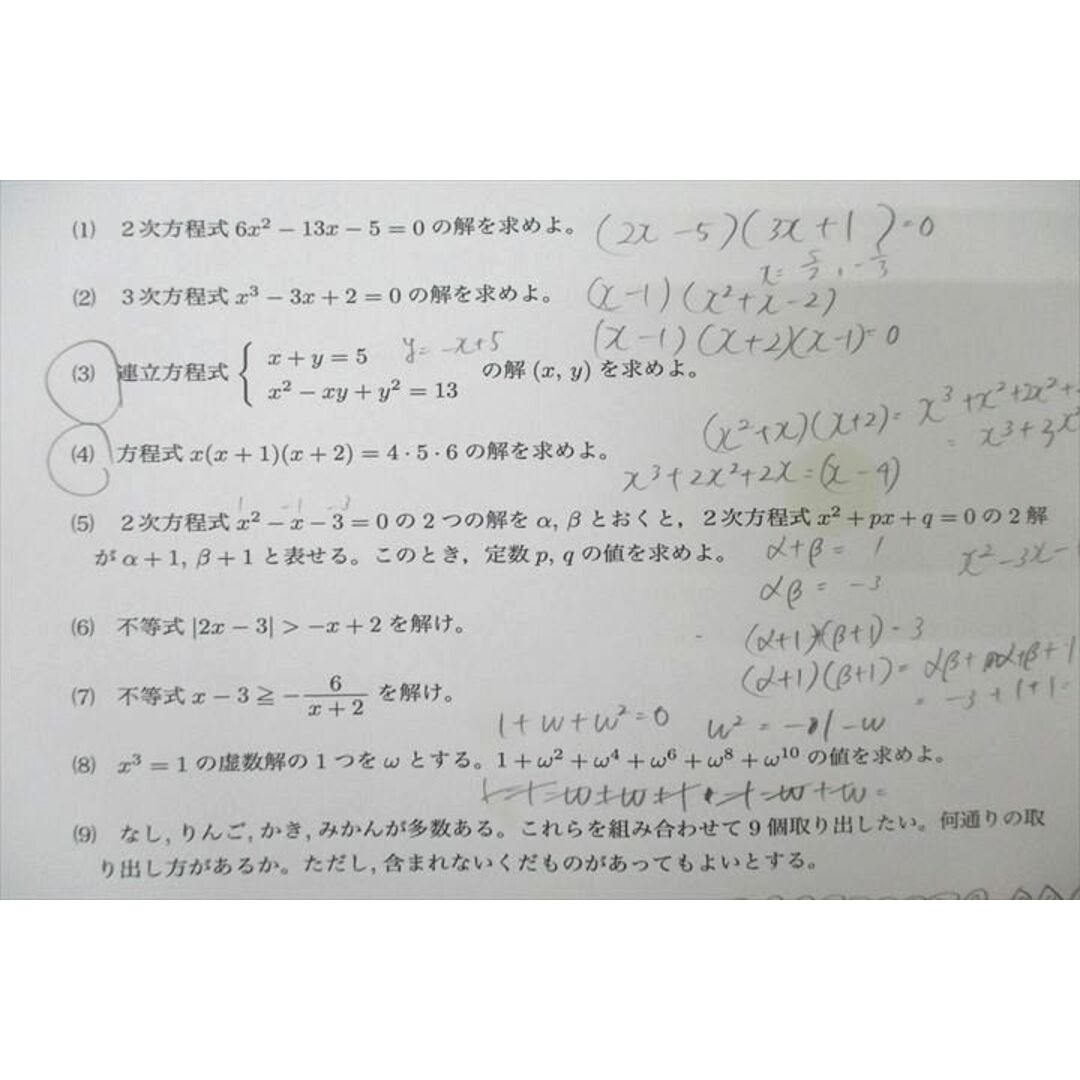 (1) 2次方程式 6x² − 13x − 5 = 0 の解を求めよ。 (2x − 5)(3x + 1) = 0
x =
(2) 3次方程式 x³ − 3x + 2 = 0 の解を求めよ。 (x − 1)(x² + x − 2)
(x − 1)(x + 2)(x − 1) = 0
(3) 連立方程式 { x + y = 5 y = −x + 5
x² − xy + y² = 13 の解 (x, y) を求めよ。
(x² + x)(x + 2) = x³ + x² + 2x² +
= x³ + 3x²
(4) 方程式 x(x + 1)(x + 2) = 4・5・6 の解を求めよ。
x³ + 2x² + 2x = (x − 4)
1 −1 −3
(5) 2次方程式 x² − x − 3 = 0 の2つの解を α, β とおくと, 2次方程式 x² + px + q = 0 の2解
が α + 1, β + 1 と表せる。このとき, 定数 p, q の値を求めよ。 α + β = 1 x² − 3x −
αβ = −3
(6) 不等式 |2x − 3| > −x + 2 を解け。
(α+1)+(β+1) = 3
(α+1)(β+1) = αβ + α+β + 1
= −3 + 1 + 1 =
(7) 不等式 x − 3 ≧ −6/(x + 2) を解け。
1 + ω + ω² = 0 ω² = −1 − ω
(8) x³ = 1 の虚数解の1つを ω とする。1 + ω² + ω⁴ + ω⁶ + ω⁸ + ω¹⁰ の値を求めよ。
(9) なし, りんご, かき, みかんが多数ある。これらを組み合わせて9個取り出したい。何通りの取
り出し方があるか。ただし, 含まれないくだものがあってもよいとする。